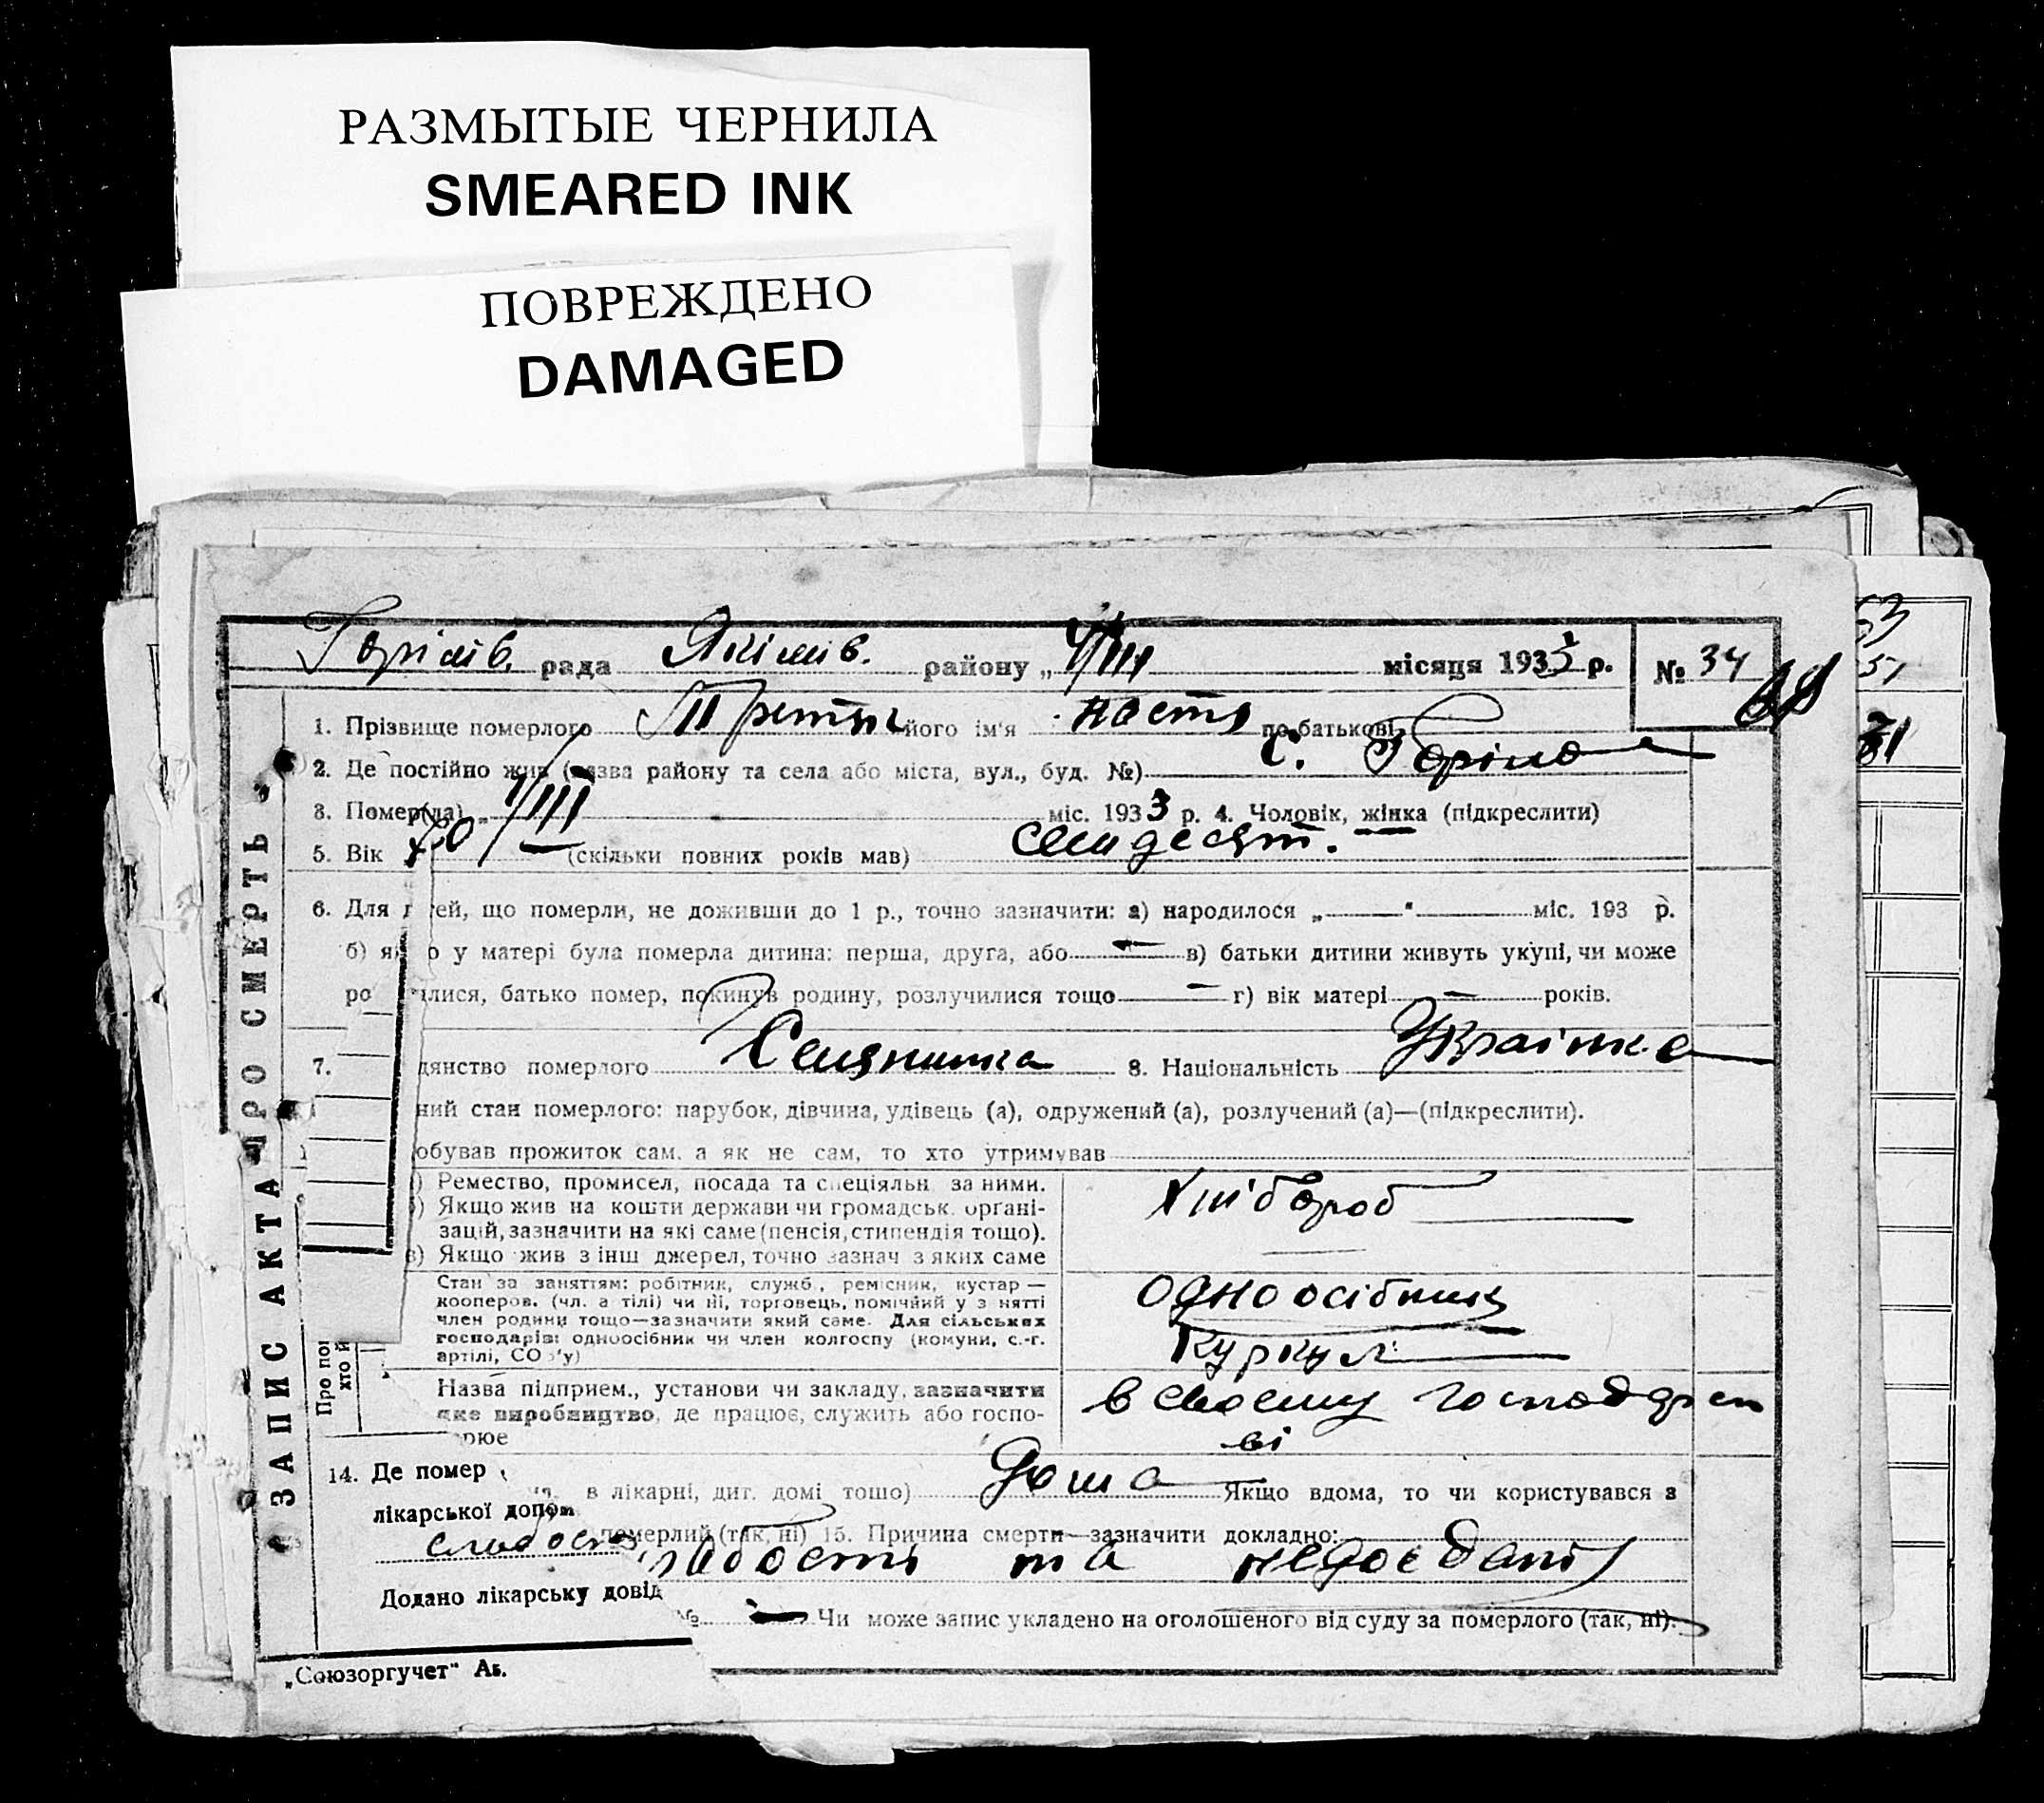 РАЗМЫТЫЕ ЧЕРНИЛА
SMEARED INK
ПОВРЕЖДЕНО
DAMAGED
рада Якімів. району „ /III місяця 1933 р. № 34
1. Прізвище померлого його ім'я по батькові
2. Де постійно жив (назва району та села або міста, вул., буд. №) с.
3. Помер(ла) „ /III міс. 1933 р. 4. Чоловік, жінка (підкреслити)
5. Вік 70 (скільки повних років мав) семидесят.
6. Для тей, що померли, не доживши до 1 р., точно зазначити: а) народилося „ — " міс. 193 р.
б) я о у матері була померла дитина: перша, друга, або — в) батьки дитини живуть укупі, чи може
ро лися, батько помер, покинув родину, розлучилися тощо — г) вік матері — років.
7. дянство померлого Селянинка 8. Національність Українка
ний стан померлого: парубок, дівчина, удівець (а), одружений (а), розлучений (а)—(підкреслити).
обував прожиток сам, а як не сам, то хто утримував
) Ремество, промисел, посада та спеціяльн за ними. Хлібороб
) Якщо жив на кошти держави чи громадськ. органі-
зацій, зазначити на які саме (пенсія, стипендія тощо). —
в) Якщо жив з інш джерел, точно зазнач з яких саме
Стан за заняттям: робітник, служб., ремісник, кустар — одноосібник
кооперов. (чл. а тілі) чи ні, торговець, помічний у з нятті
член родини тощо—зазначити який саме. Для сільських
господарів: одноосібник чи член колгоспу (комуни, с.-г. куркул
артілі, СО з'у)
Назва підприєм., установи чи закладу, зазначити в своєму господарст
яке виробництво, де працює, служить або госпо- ві
рює
14. Де помер в лікарні, дит. домі тощо) дома Якщо вдома, то чи користувався з
лікарської допом померлий (так, ні) 15. Причина смерти—зазначити докладно:
слабость та недоєдания
Додано лікарську довід № — Чи може запис укладено на оголошеного від суду за померлого (так, ні).
„Союзоргучет" Аг.
ЗАПИС АКТА ПРО СМЕРТЬ
Про по
хто й